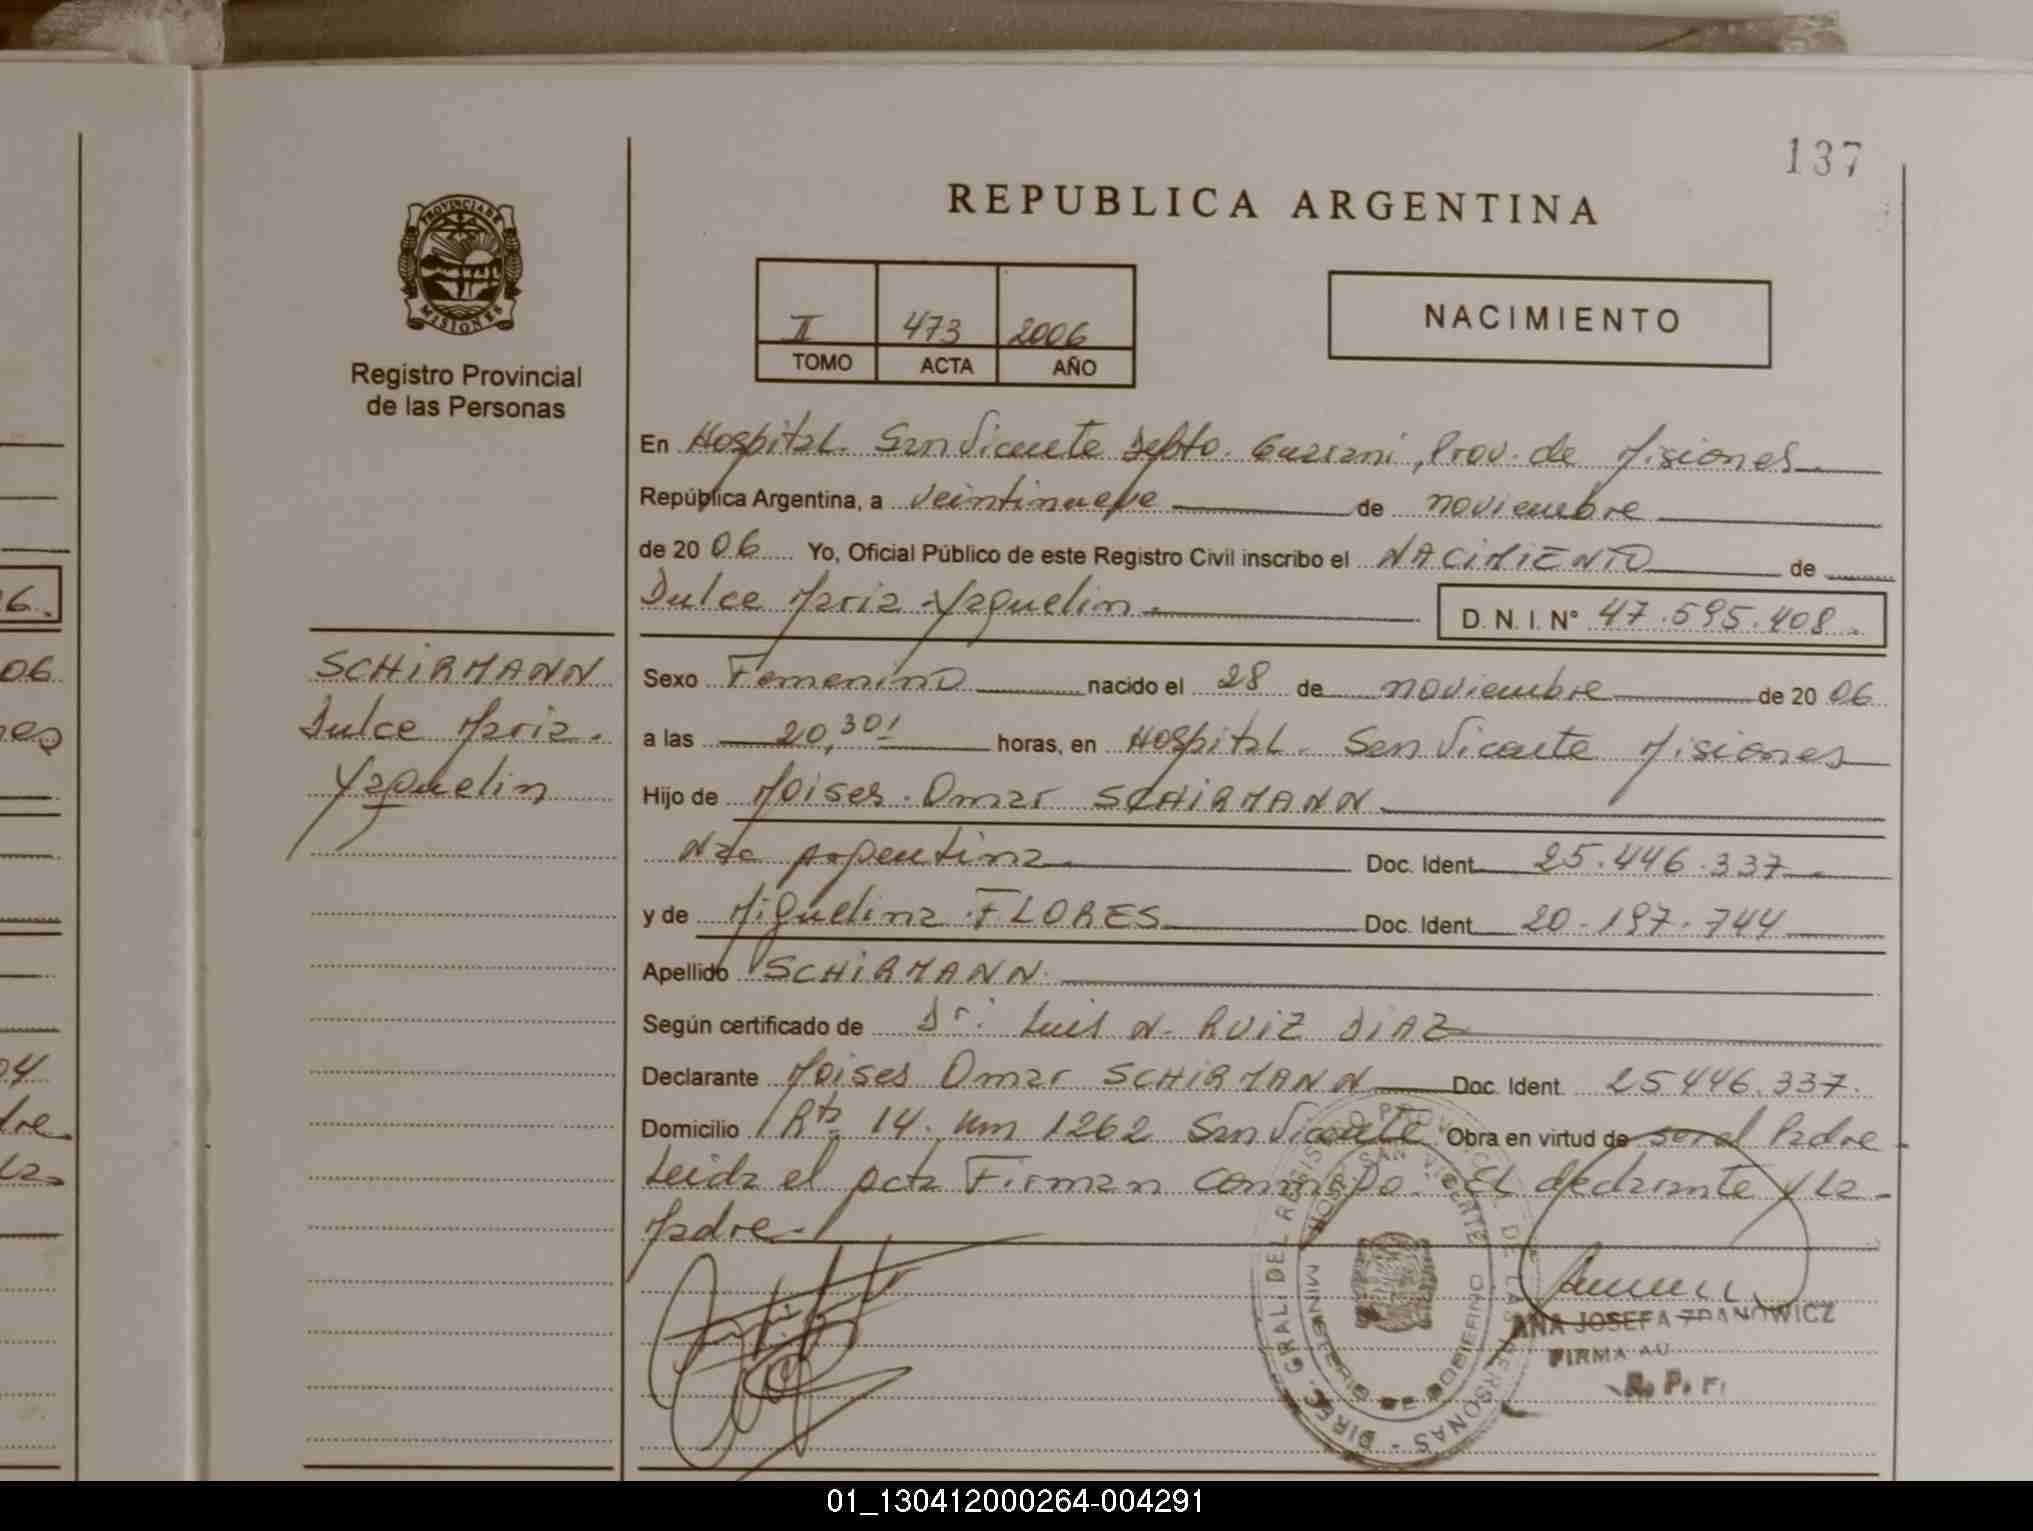 137
REPUBLICA ARGENTINA
PROVINCIA DE MISIONES
Registro Provincial
de las Personas
II 473 2006
TOMO ACTA AÑO
NACIMIENTO
En Hospital. San Vicente Depto. Guarani, Prov. de Misiones
República Argentina, a veintinueve de noviembre
de 20 06 Yo, Oficial Público de este Registro Civil inscribo el NACIMIENTO de
Dulce Maria Yaquelin. D. N. I. N° 47.595.408.
SCHIRMANN
Dulce Maria.
Yaquelin
Sexo Femenino nacido el 28 de noviembre de 20 06
a las 20,30' horas, en Hospital. San Vicente Misiones
Hijo de Moises Omar SCHIRMANN
Nac argentina Doc. Ident. 25.446.337
y de Miguelina FLORES Doc. Ident. 20.197.744
Apellido SCHIRMANN
Según certificado de Dr. Luis N. RUIZ DIAZ
Declarante Moises Omar SCHIRMANN Doc. Ident. 25446.337.
Domicilio Rta 14. Km 1262 San Vicente Obra en virtud de ser el Padre
Leida el acta Firman conmigo. El declarante y la
Madre
DIREC. GRAL. DEL REGISTRO PROVINCIAL DE LAS PERSONAS
HOSP. SAN VICENTE
MINISTERIO DE GOBIERNO
ANA JOSEFA ZDANOWICZ
FIRMA AU
R. P. P.
06
04
01_130412000264-004291